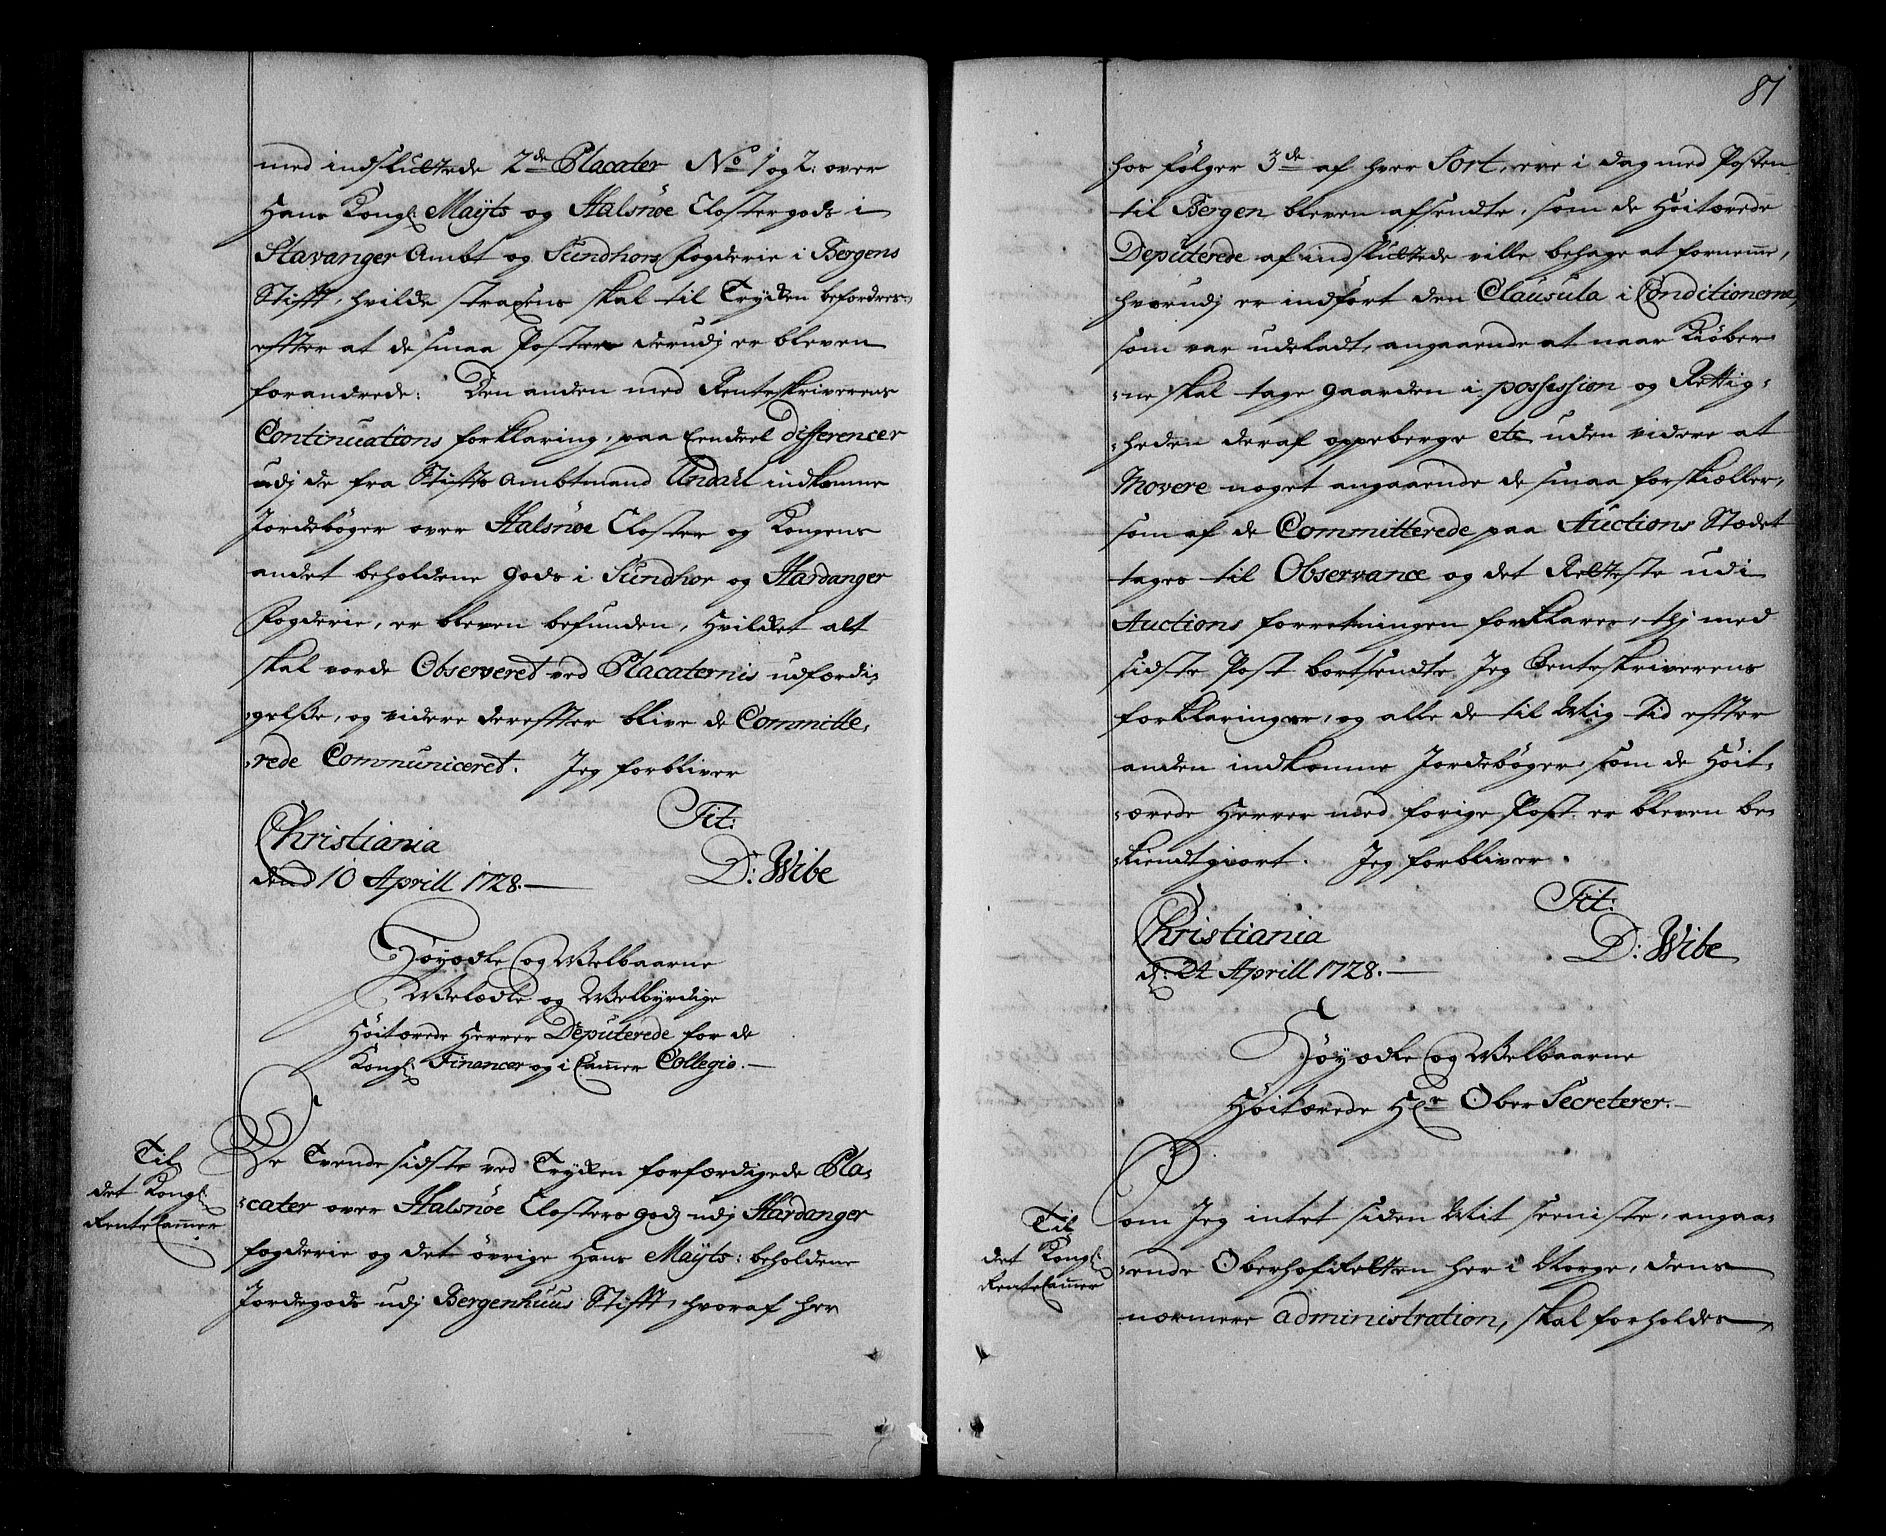 med indsluttede 2de Placater No 1 og 2: over
Hans Kongl: Mayts og Halsnöe Clostergods i
Stavanger Ambt og Sundhors fogderie i Bergens
Stifft, hvilke straxens skal til Trycken befordres
effter at de smaa Poster derudj er bleven
forandrede: Den anden med Renteskriverens
Continuations forklaring, paa Eendeel differencer
udj de fra Stiffts Ambtmand Undall indkomne
Jordebøger over Halsnöe Closter og Kongens
andet beholdene gods i Sundhor og Hardanger
fogderie, er bleven befunden, hvilket alt
skal vorde Observeret ved Placaternis udfærdi-
gelße, og videre dereffter blive de Committe-
rede Communiceret. Jeg forbliver
Tit:
Christiania
dend 10 Aprill 1728.
D: Wibe
Høyædle og Welbaarne
Welædle og Welbyrdige
Høitærede Herrer Deputerede for de
Kongl: Financer og i Cammer Collegio.
Til
det Kongl:
RenteCammer
De Tvende sidste ved Trycken forfærdigede Pla-
cater over Halsnöe Closters gods udj Hardanger
fogderie og det øvrige Hans Mayts: beholdene
Jordegods udj Bergenhuus Stifft, hvoraf her
87
hos følger 3de af hver Sort, ere i dag med Posten
til Bergen bleven afsendte, som de Høitærede
Deputerede af indsluttede ville behage at fornemme,
hvorudj er indført den Clausula i Conditionerne,
som var udeladt, angaaende at naar Kiøber-
ne skal tage gaarden i possession og Rettig-
heden deraf oppeberge etc uden videre at
Movere noget angaaende de smaa forskiæller,
som af de Committerede paa Auctions Stædet
tages til Observance og det Retteste udi
Auctions forretningen forklarer, thj med
sidste Post bortsendte Jeg Renteskriverens
forklaringer, og alle de til Mig tid effter
anden indkomne Jordebøger, som de Høit-
ærede Herrer med forige Post er bleven be-
kiendtgiort. Jeg forbliver
Tit:
Christiania
d: 24 Aprill 1728.
D: Wibe
Høyædle og Welbaarne
Høitærede Hr Ober Secreterer.
Til
det Kongl:
RenteCammer
Som Jeg intet siden Mit seeniste, angaa-
ende Oberhofretten her i Norge, dens
nærmere administration, skal forholdes,